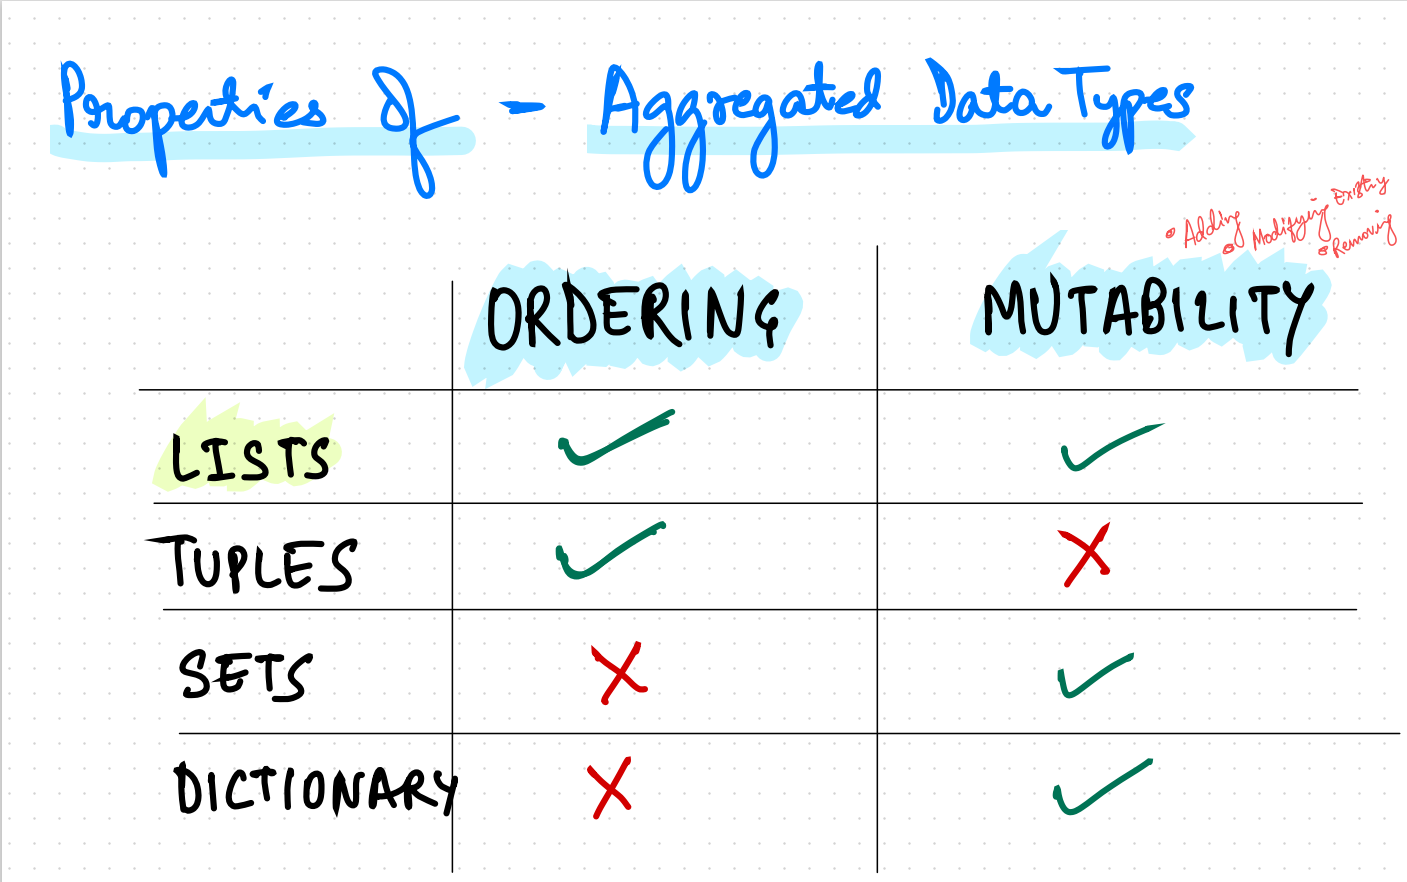 Properties Of - Aggregated Data Types
• Adding
• Modifying Existing
• Removing
ORDERING MUTABILITY
LISTS ✓ ✓
TUPLES ✓ ✗
SETS ✗ ✓
DICTIONARY ✗ ✓